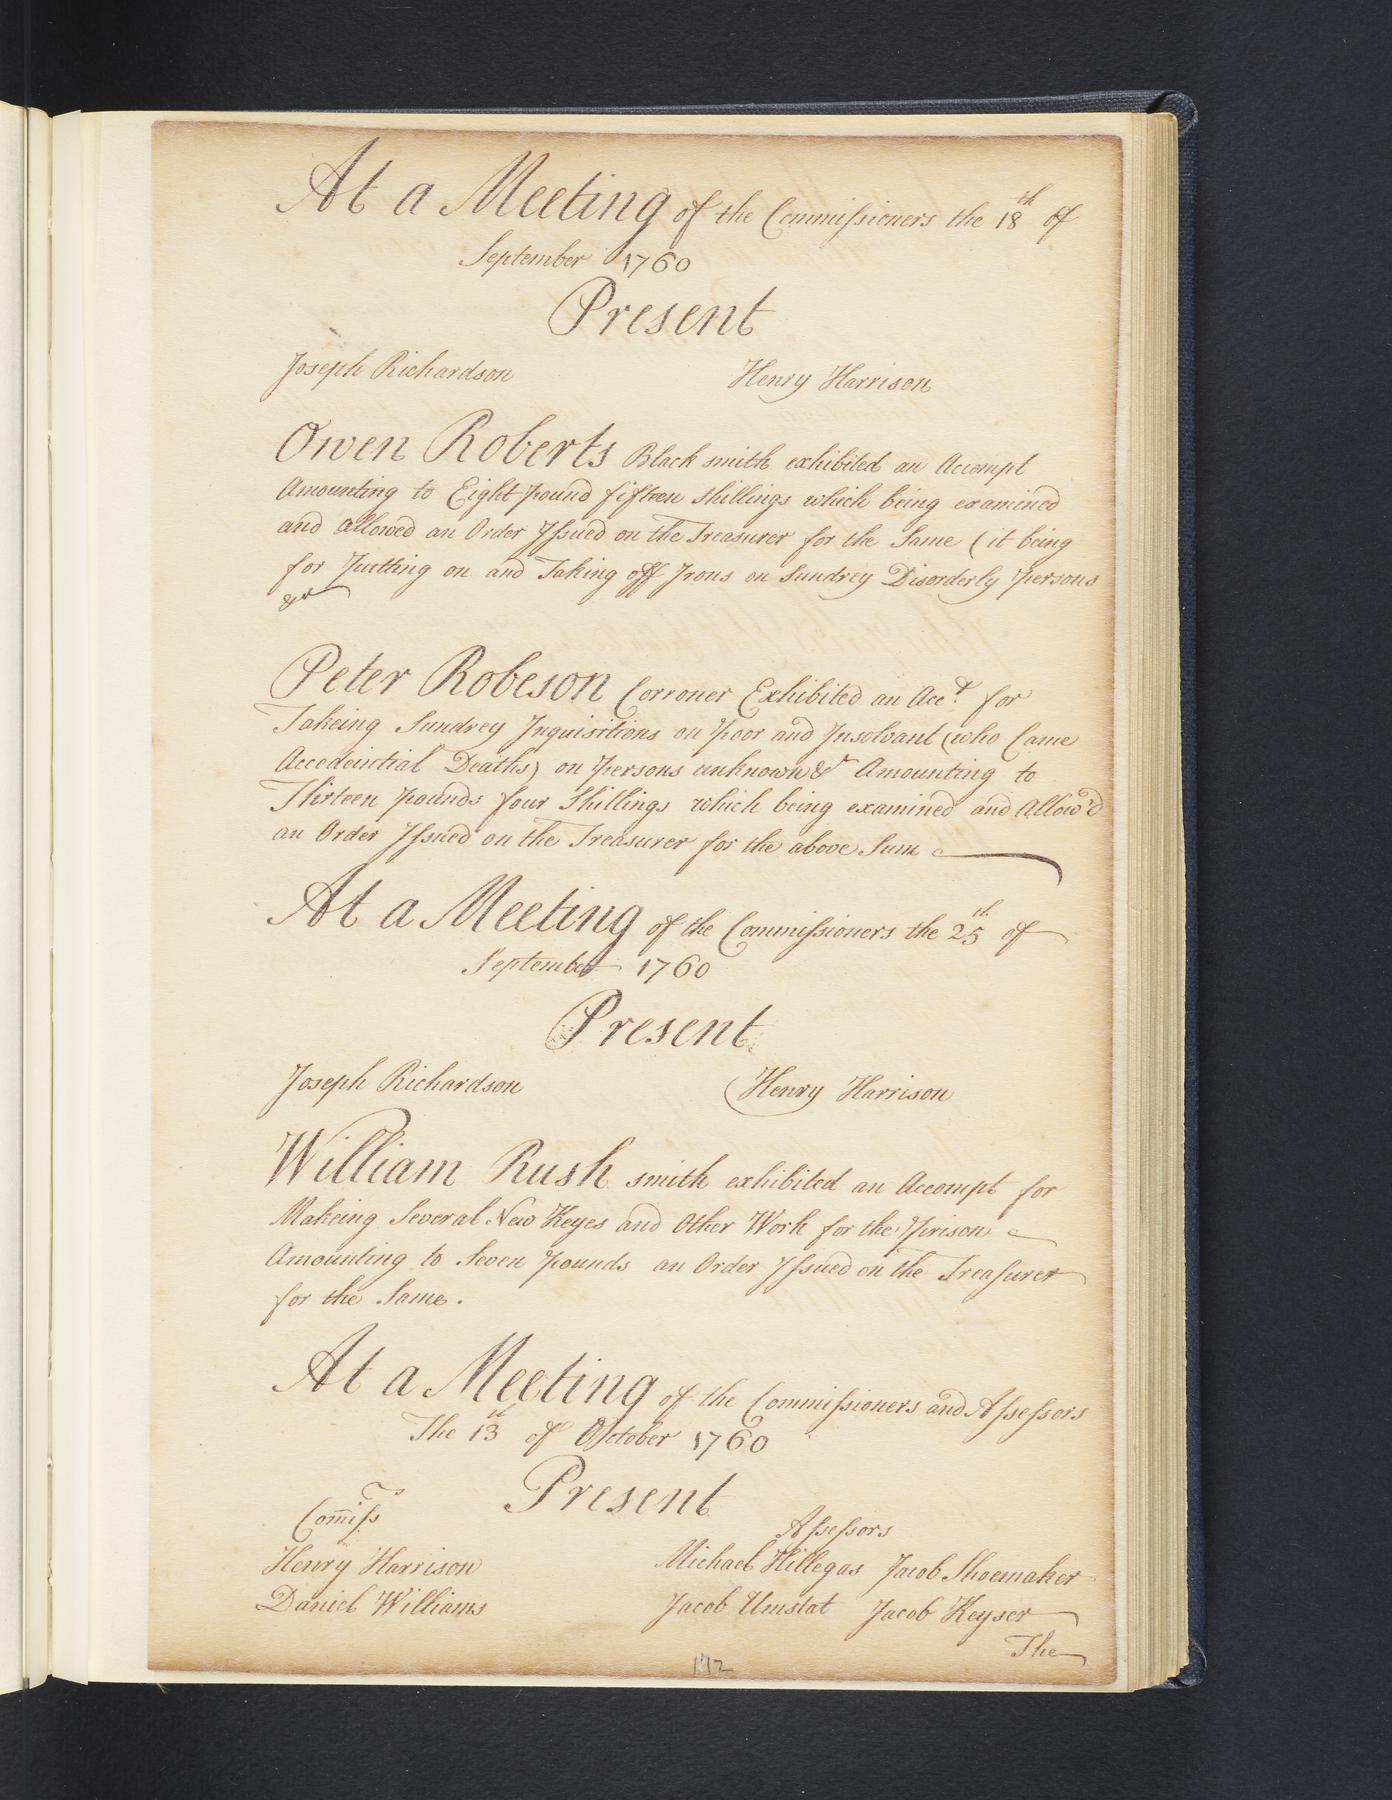 At a Meeting of the Commissioners the 18th of
September 1760
Present
Joseph Richardson Henry Harrison
Owen Roberts Black smith exhibited an Accompt
Amounting to Eight pound fifteen shillings which being examined
and allowed an Order Issued on the Treasurer for the Same (it being
for Putting on and Taking off Irons on Sundrey Disorderly persons
&c
Peter Robeson Corroner Exhibited an Acct. for
Takeing Sundrey Inquisitions on Poor and Insolvant (who Came
Accedential Deaths) on persons unknown &c Amounting to
Thirteen pounds four Shillings which being examined and Allow'd
an Order Issued on the Treasurer for the above Sum
At a Meeting of the Commissioners the 25th of
September 1760
Present
Joseph Richardson Henry Harrison
William Rush smith exhibited an Accompt for
Makeing Several New Keyes and Other Work for the Prison
Amounting to Seven pounds an Order Issued on the Treasurer
for the Same.
At a Meeting of the Commissioners and Assessors
The 13th of October 1760
Present
Commissrs Assessors
Henry Harrison Michael Hillegas Jacob Shoemaker
Daniel Williams Jacob Umstat Jacob Keyser
The
172